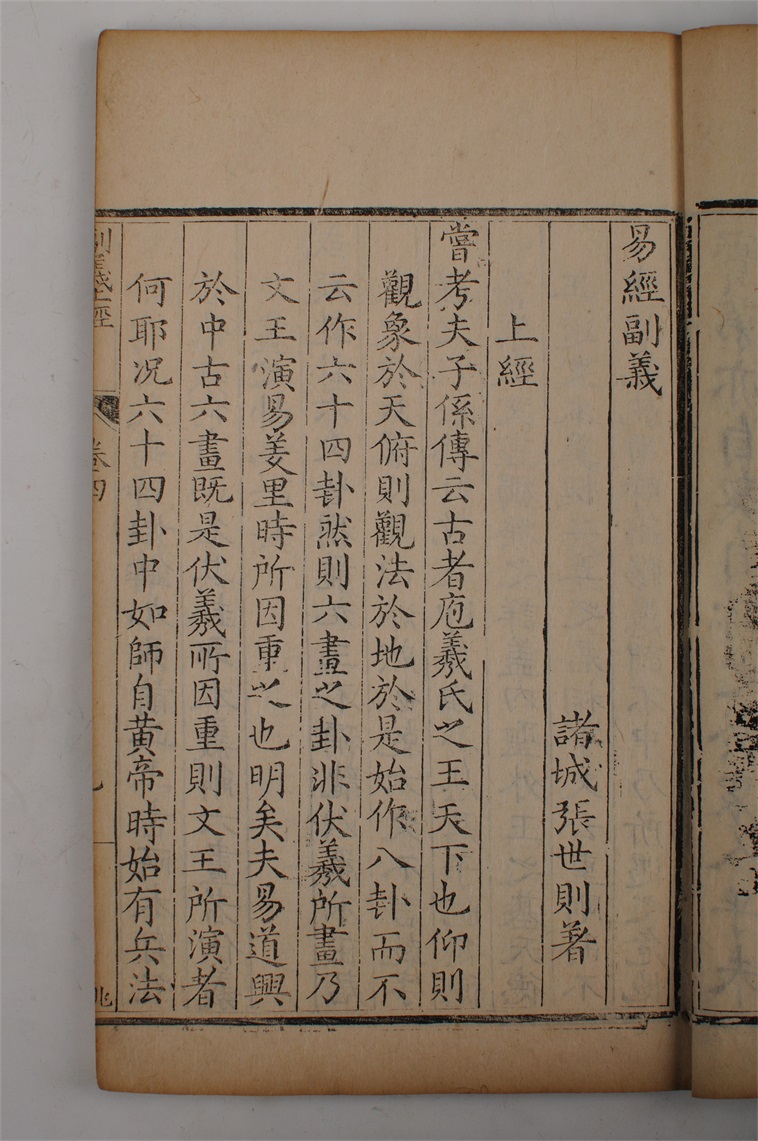 易經副義
諸城張世則著
上經
嘗考夫子係傳云古者庖羲氏之王天下也仰則
觀象於天俯則觀法於地於是始作八卦而不
云作六十四卦然則六畫之卦非伏羲所畫乃
文王演易羑里時所因重之也明矣夫易道興
於中古六畫既是伏羲所因重則文王所演者
何耶况六十四卦中如師自黄帝時始有兵法
卷四